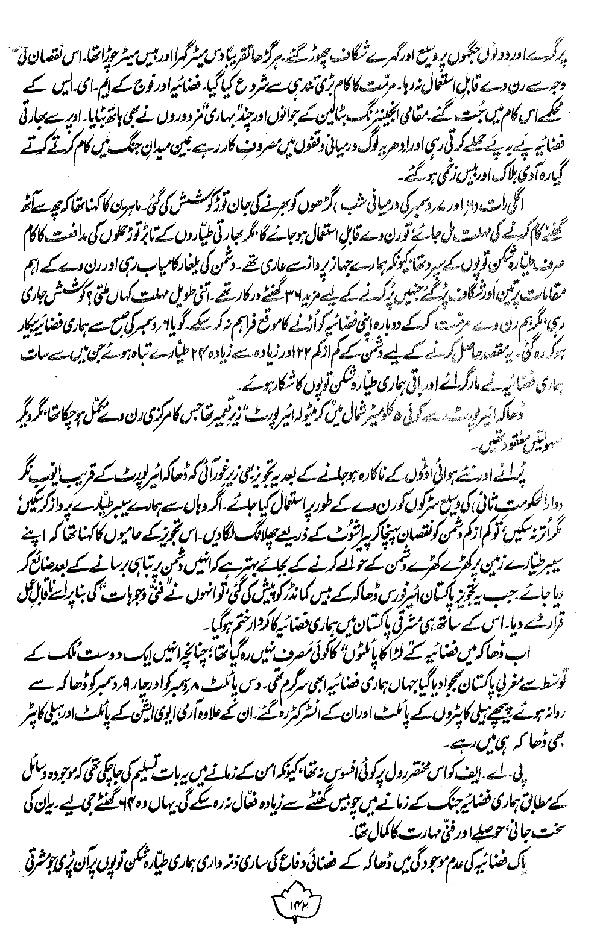 پر گرے اور دونوں جگہوں پر وسیع اور گہرے شگاف چھوڑ گئے۔ ہر گڑھا تقریباً دس میٹر گہرا اور بیس میٹر چوڑا تھا۔ اس نقصان کی
وجہ سے رن وے قابلِ استعمال نہ رہا۔ مرمّت کا کام بڑی تندہی سے شروع کیا گیا۔ فضائیہ اور فوج کے ایم۔ ای۔ ایس کے
محکمے اس کام میں جُت گئے۔ مقامی انجینئرنگ بٹالین کے جوانوں اور چند "بہاری" مزدوروں نے بھی ہاتھ بٹایا۔ اوپر سے بھارتی
فضائیہ پے بہ پے حملے کرتی رہی اور ادھر یہ لوگ درمیانی وقفوں میں مصروفِ کار رہے۔ عین میدانِ جنگ میں کام کرتے کرتے
گیارہ آدمی ہلاک اور بیس زخمی ہو گئے۔
اگلی رات (۶ اور ۷ دسمبر کی درمیانی شب) گڑھوں کو بھرنے کی جان توڑ کوشش کی گئی۔ ماہرین کا کہنا تھا کہ چھ سے آٹھ
گھنٹے کام کرنے کی مہلت مل جائے تو رن وے قابلِ استعمال ہو جائے گا، مگر بھارتی طیّاروں کے تابڑ توڑ حملوں کی مدافعت کا کام
صرف طیّارہ شکن توپوں کے سپرد تھا کیونکہ ہمارے جہاز پرواز سے عاری تھے۔ دشمن کی یلغار کامیاب رہی اور رن وے کے اہم
مقامات پر تین اور شگاف پڑ گئے جنہیں پُر کرنے کے لیے مزید ۳۶ گھنٹے درکار تھے۔ اتنی طویل مہلت کہاں ملتی؟ کوشش جاری
رہی، مگر ہم رن وے مرمّت کر کے دوبارہ اپنی فضائیہ کو اُڑنے کا موقع فراہم نہ کر سکے۔ گویا ۶ دسمبر کی صبح سے ہماری فضائیہ بیکار
ہو کر رہ گئی۔ یہ مقصد حاصل کرنے کے لیے دشمن کے کم از کم ۲۲ اور زیادہ سے زیادہ ۲۴ طیّارے تباہ ہوئے جن میں سے سات
ہماری فضائیہ نے مار گرائے اور باقی ہماری طیّارہ شکن توپوں کا شکار ہوئے۔
ڈھاکہ ائیرپورٹ سے کوئی ۵ کلومیٹر شمال میں کرمیٹولہ ائیرپورٹ زیرِ تعمیر تھا جس کا مرکزی رن وے مکمل ہو چکا تھا، مگر دیگر
سہولتیں مفقود تھیں۔
پُرانے اور نئے ہوائی اڈّوں کے ناکارہ ہو جانے کے بعد یہ تجویز بھی زیرِ غور آئی کہ ڈھاکہ ائیرپورٹ کے قریب ایوب نگر
(دارالحکومت ثانی) کی وسیع سڑکوں کو رن وے کے طور پر استعمال کیا جائے۔ اگر وہاں سے ہمارے سیبر طیّارے پرواز کر سکیں
مگر اُتر نہ سکیں، تو کم از کم دشمن کو نقصان پہنچا کر پیراشوٹ کے ذریعے چھلانگ لگا دیں۔ اس تجویز کے حامیوں کا کہنا تھا کہ اپنے
سیبر طیّارے زمین پر کھڑے کھڑے دشمن کے حوالے کرنے کے بجائے بہتر ہے کہ انہیں دشمن پر تباہی برسانے کے بعد ضائع کر
دیا جائے۔ جب یہ تجویز پاکستان ائیر فورس ڈھاکہ کے بیس کمانڈر کو پیش کی گئی، تو انہوں نے "فنّی وجوہات" کی بنا پر اسے ناقابلِ عمل
قرار دے دیا۔ اس کے ساتھ ہی مشرقی پاکستان میں ہماری فضائیہ کا کردار ختم ہو گیا۔
اب ڈھاکہ میں فضائیہ کے لڑاکا پائلٹوں کا کوئی مصرف نہیں رہ گیا تھا؛ چنانچہ انہیں ایک دوست ملک کے
توسّط سے مغربی پاکستان بھجوا دیا گیا جہاں ہماری فضائیہ ابھی سرگرم تھی۔ دس پائلٹ ۸ دسمبر کو اور چار ۹ دسمبر کو ڈھاکہ سے
روانہ ہوئے پیچھے ہیلی کاپٹروں کے پائلٹ اور ان کے انسٹرکٹر رہ گئے۔ ان کے علاوہ آرمی ایوی ایشن کے پائلٹ اور ہیلی کاپٹر
بھی ڈھاکہ ہی میں رہے۔
پی۔ اے۔ ایف کو اس مختصر رول پر کوئی افسوس نہ تھا، کیونکہ امن کے زمانے میں یہ بات تسلیم کی جا چکی تھی کہ موجودہ وسائل
کے مطابق ہماری فضائیہ جنگ کے زمانے میں چوبیس گھنٹے سے زیادہ فعّال نہ رہ سکے گی۔ یہاں وہ ۶۴ گھنٹے جی لیے۔ یہ ان کی
سخت جانی، حوصلے اور فنّی مہارت کا کمال تھا۔
پاک فضائیہ کی عدم موجودگی میں ڈھاکہ کے فضائی دفاع کی ساری ذمہ داری ہماری طیّارہ شکن توپوں پر آن پڑی جو مشرقی
۱۴۲